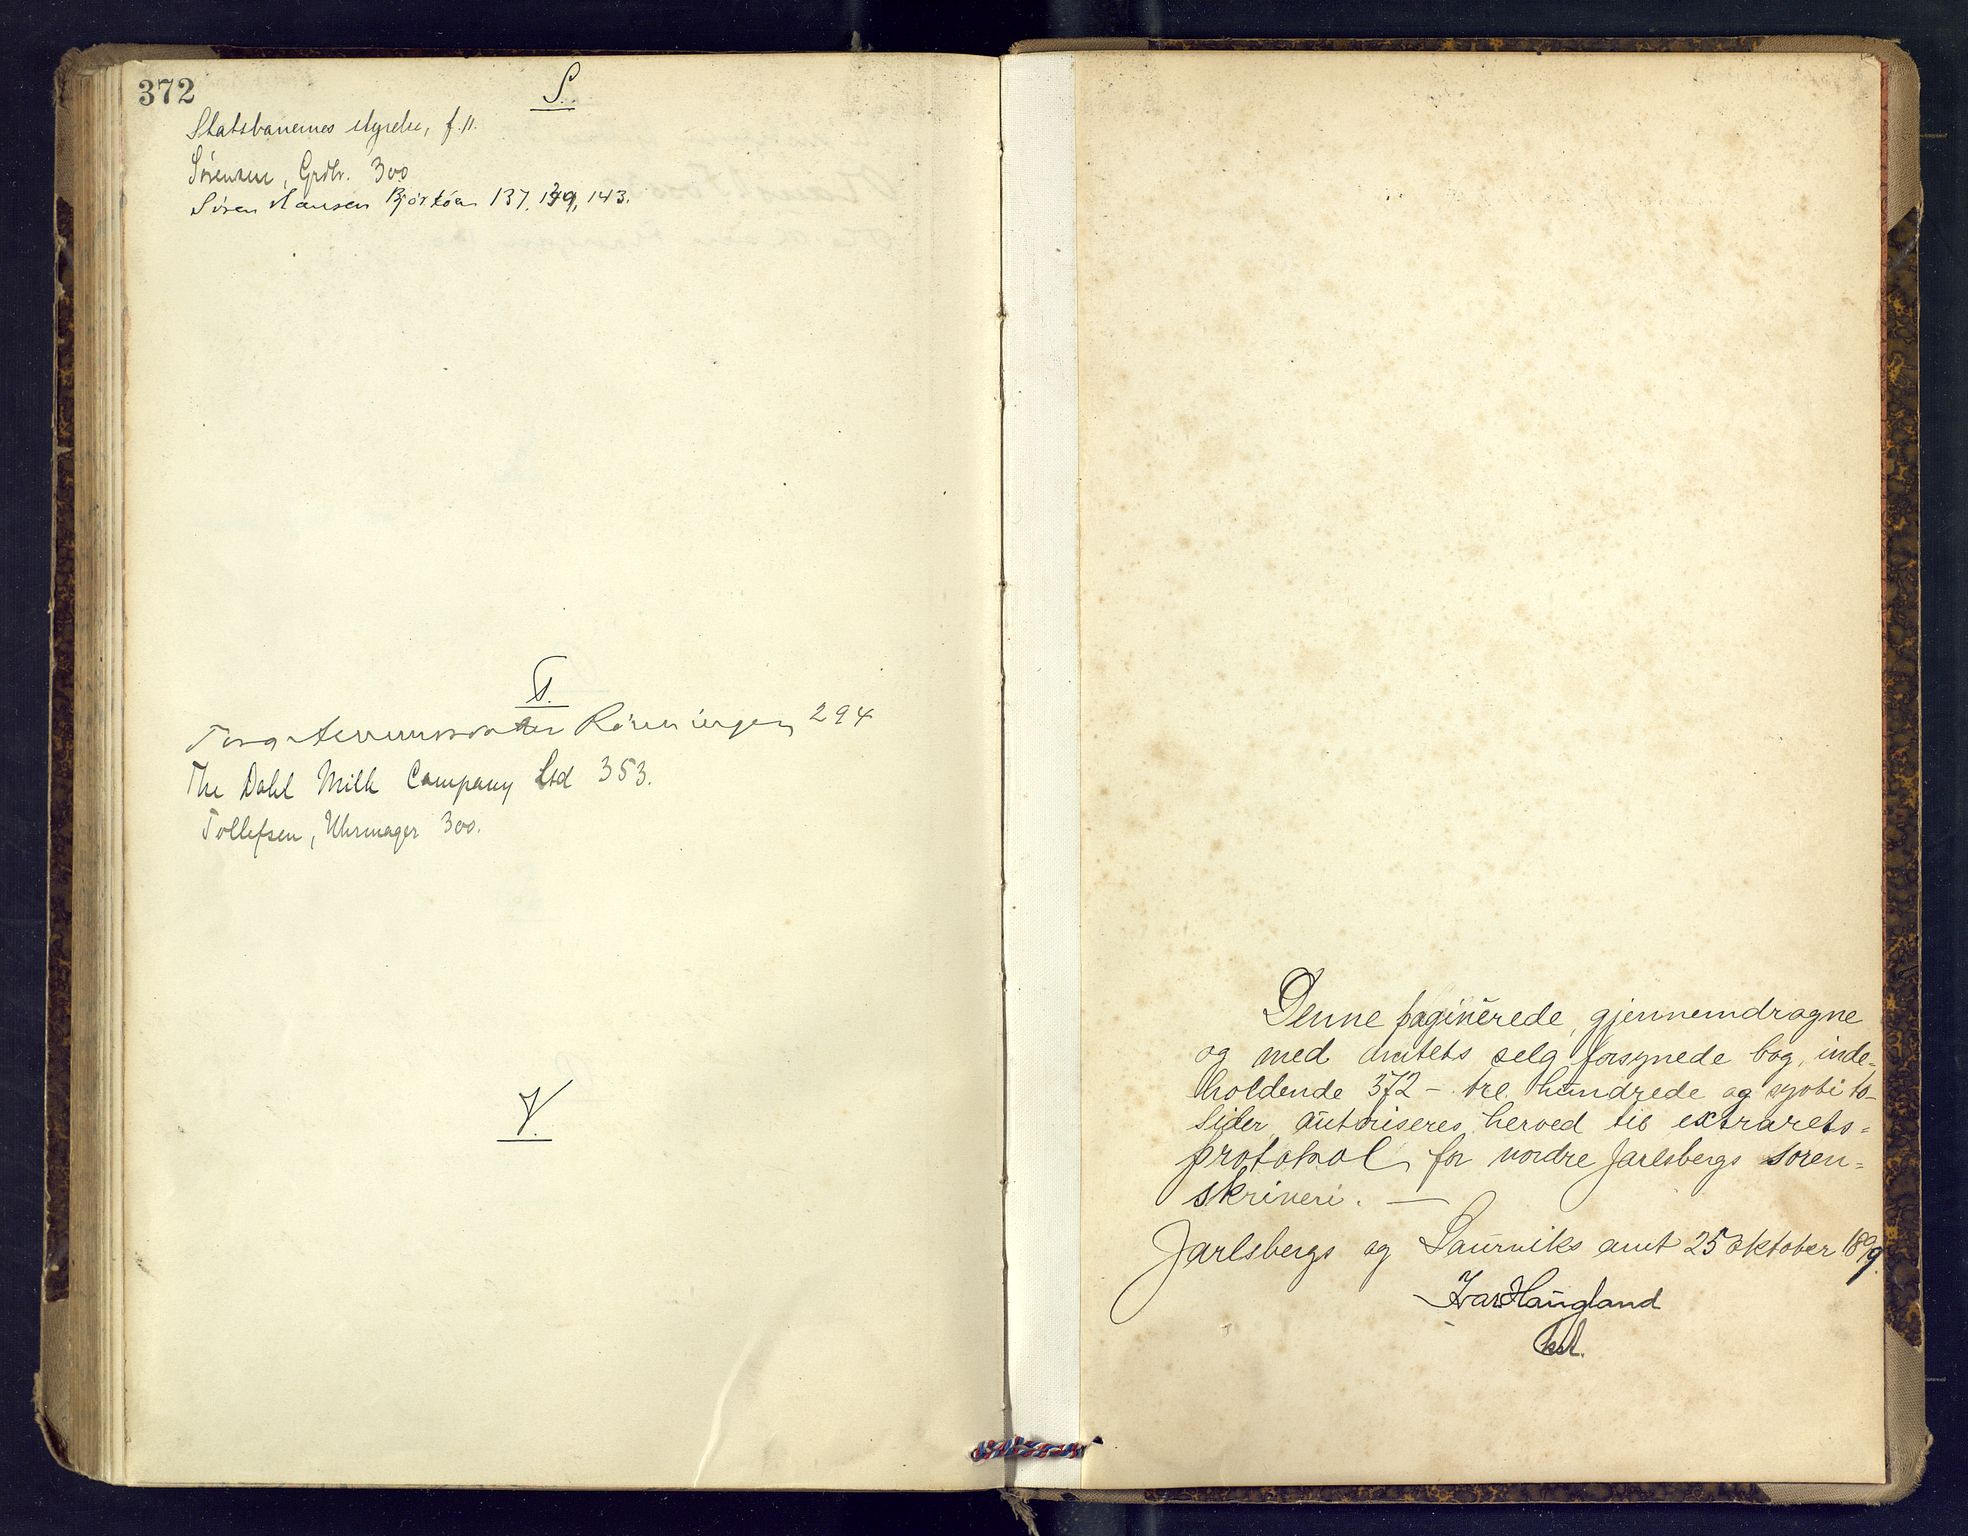 372
S.
Statsbanernes styrelse, f. 11.
Sørensen, Grdbr. 300
Søren Hansen Bjørkøen 137, 139, 143.
T.
294
The Dahl Milk Company Ltd 353.
Tollefsen, Uhrmager 300.
V.
Denne paginerede, gjennemdragne
og med amtets selg forsynede bog, inde-
holdende 372 - tre hundrede og sytti to-
sider autoriseres herved til extrarets-
protokol for nordre Jarlsbergs soren-
skriveri. —
Jarlsbergs og Laurviks amt 25 oktober 1899.
Ivar Haugland
kst.